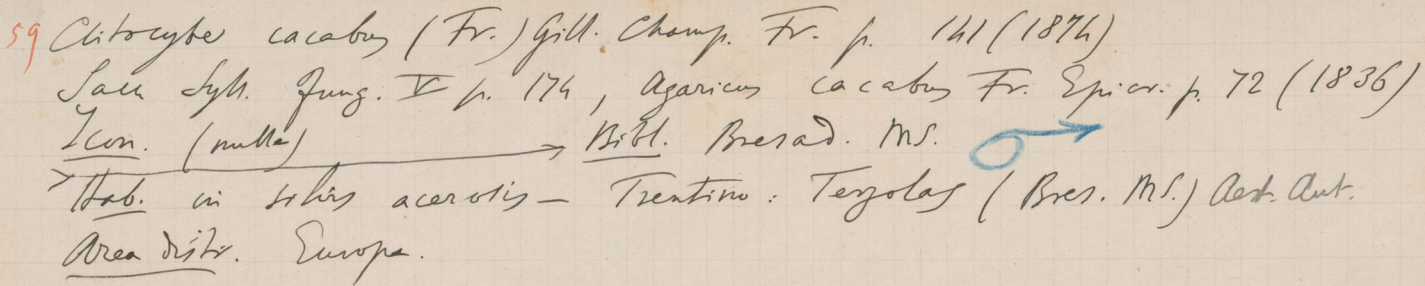 59 Clitocybe cacabus (Fr.) Gill. Champ. Fr. p. 141 (1874)
Sacc Syll. Fung. V p. 174, Agaricus cacabus Fr. Epicr. p. 72 (1836)
Icon. (nulla) Bibl. Bresad. MS.
Hab. in silvis acerosis — Trentino: Terzolas (Bres. MS.) Aest. Aut.
Area distr. Europa.